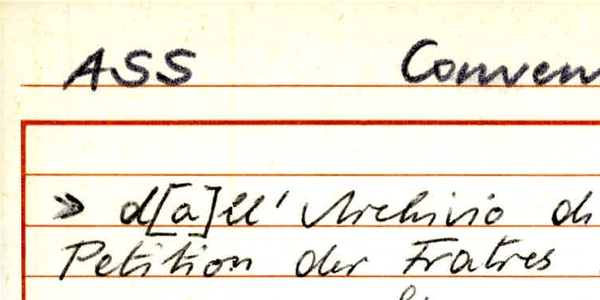 ASS Conven
» d[a]ll' Archivio di
Petition der Fratres